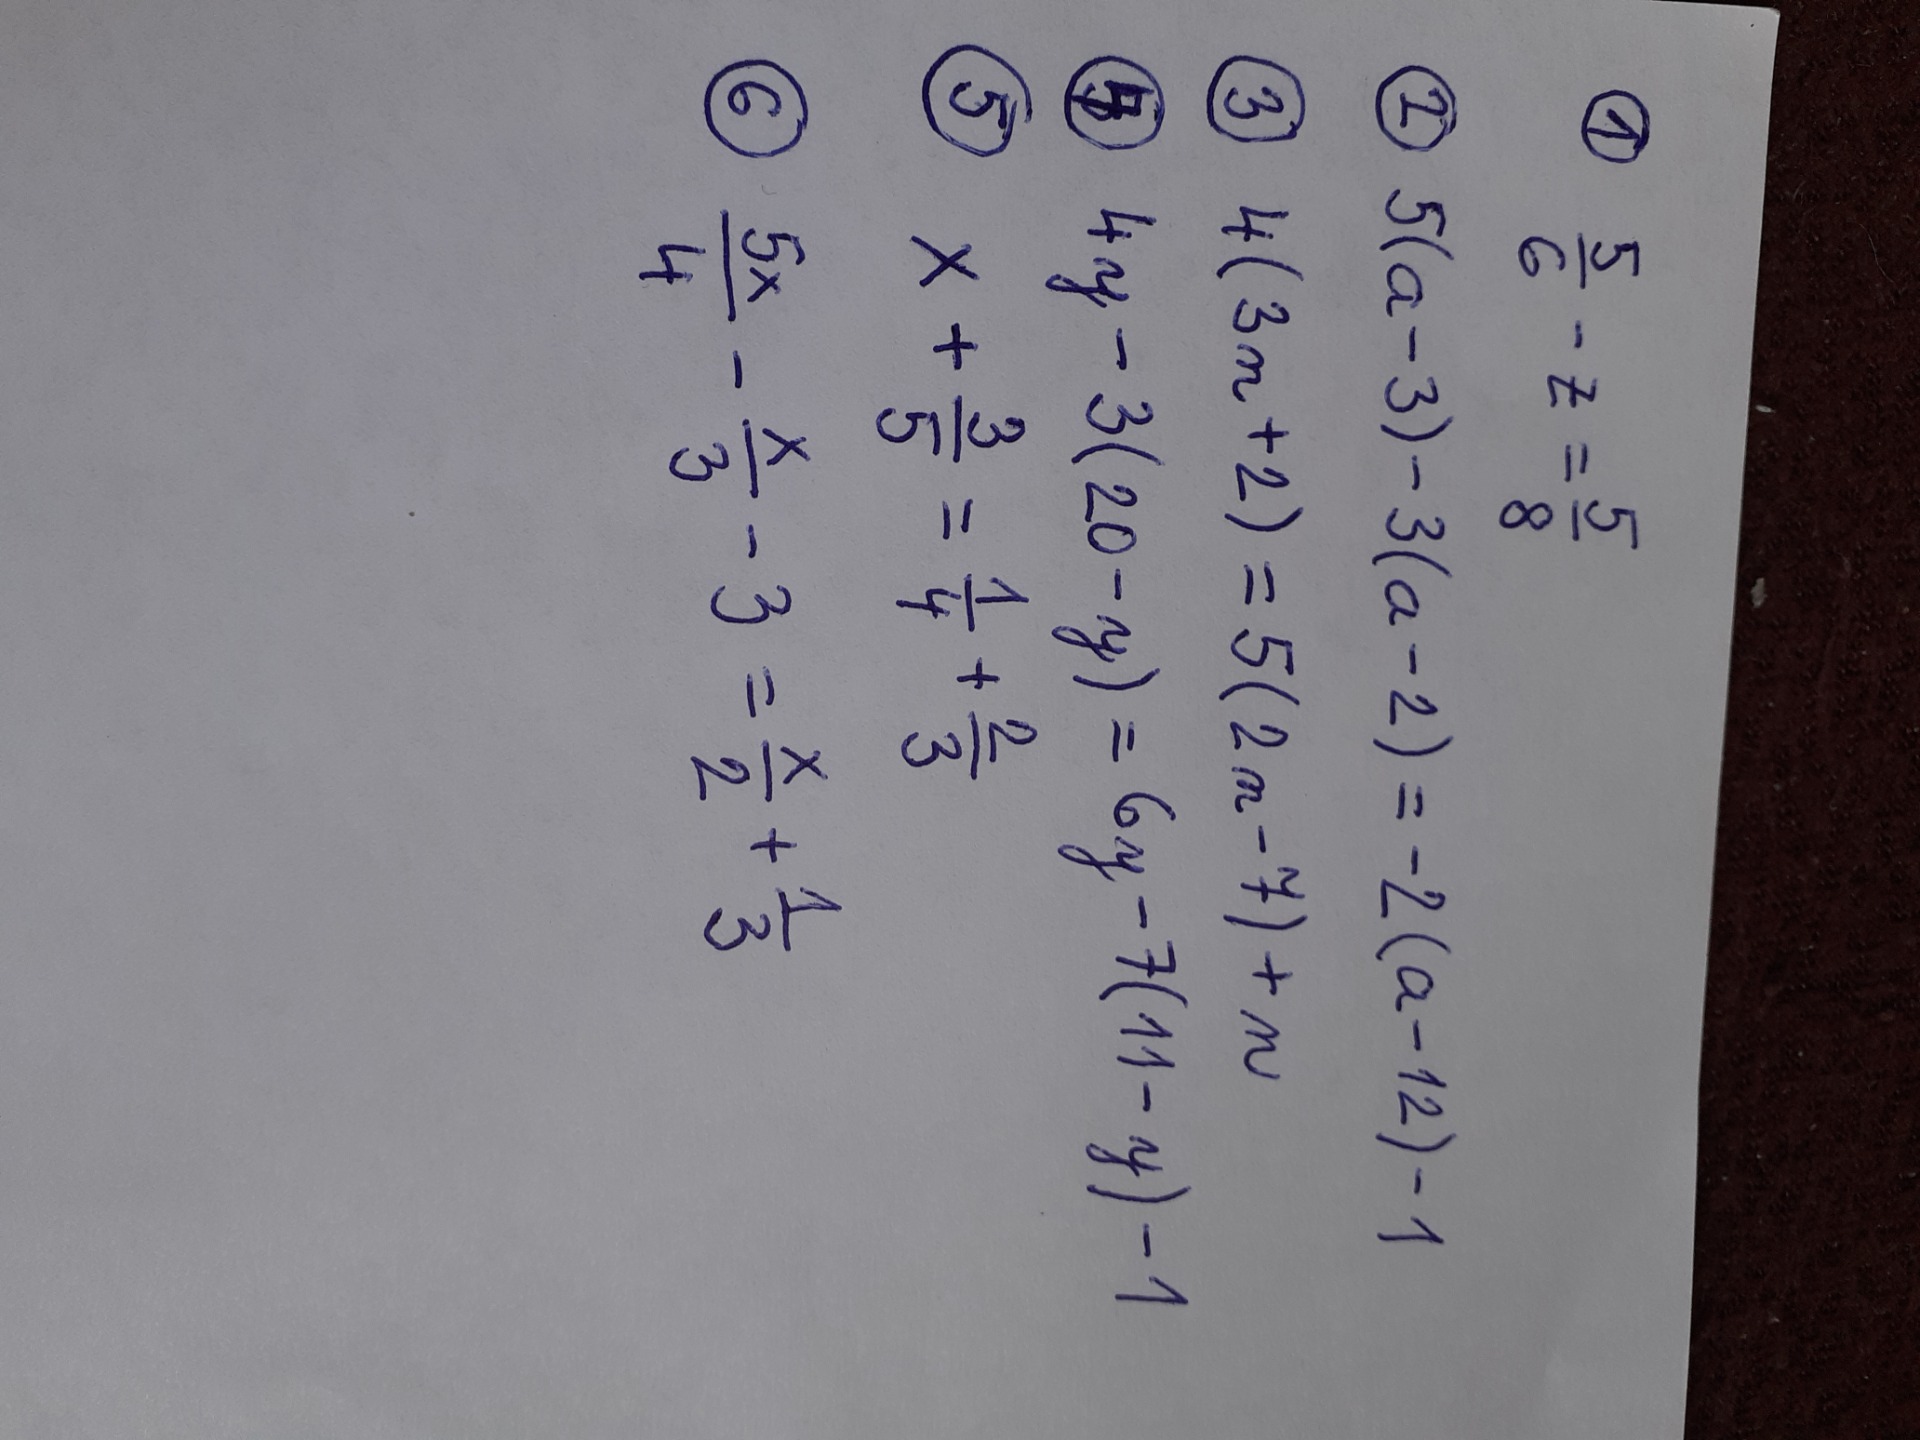 ① 5/6 - z = 5/8
② 5(a-3)-3(a-2)=-2(a-12)-1
③ 4(3n+2)=5(2n-7)+n
④ 4y-3(20-y)=6y-7(11-y)-1
⑤ x + 3/5 = 1/4 + 2/3
⑥ 5x/4 - x/3 - 3 = x/2 + 1/3